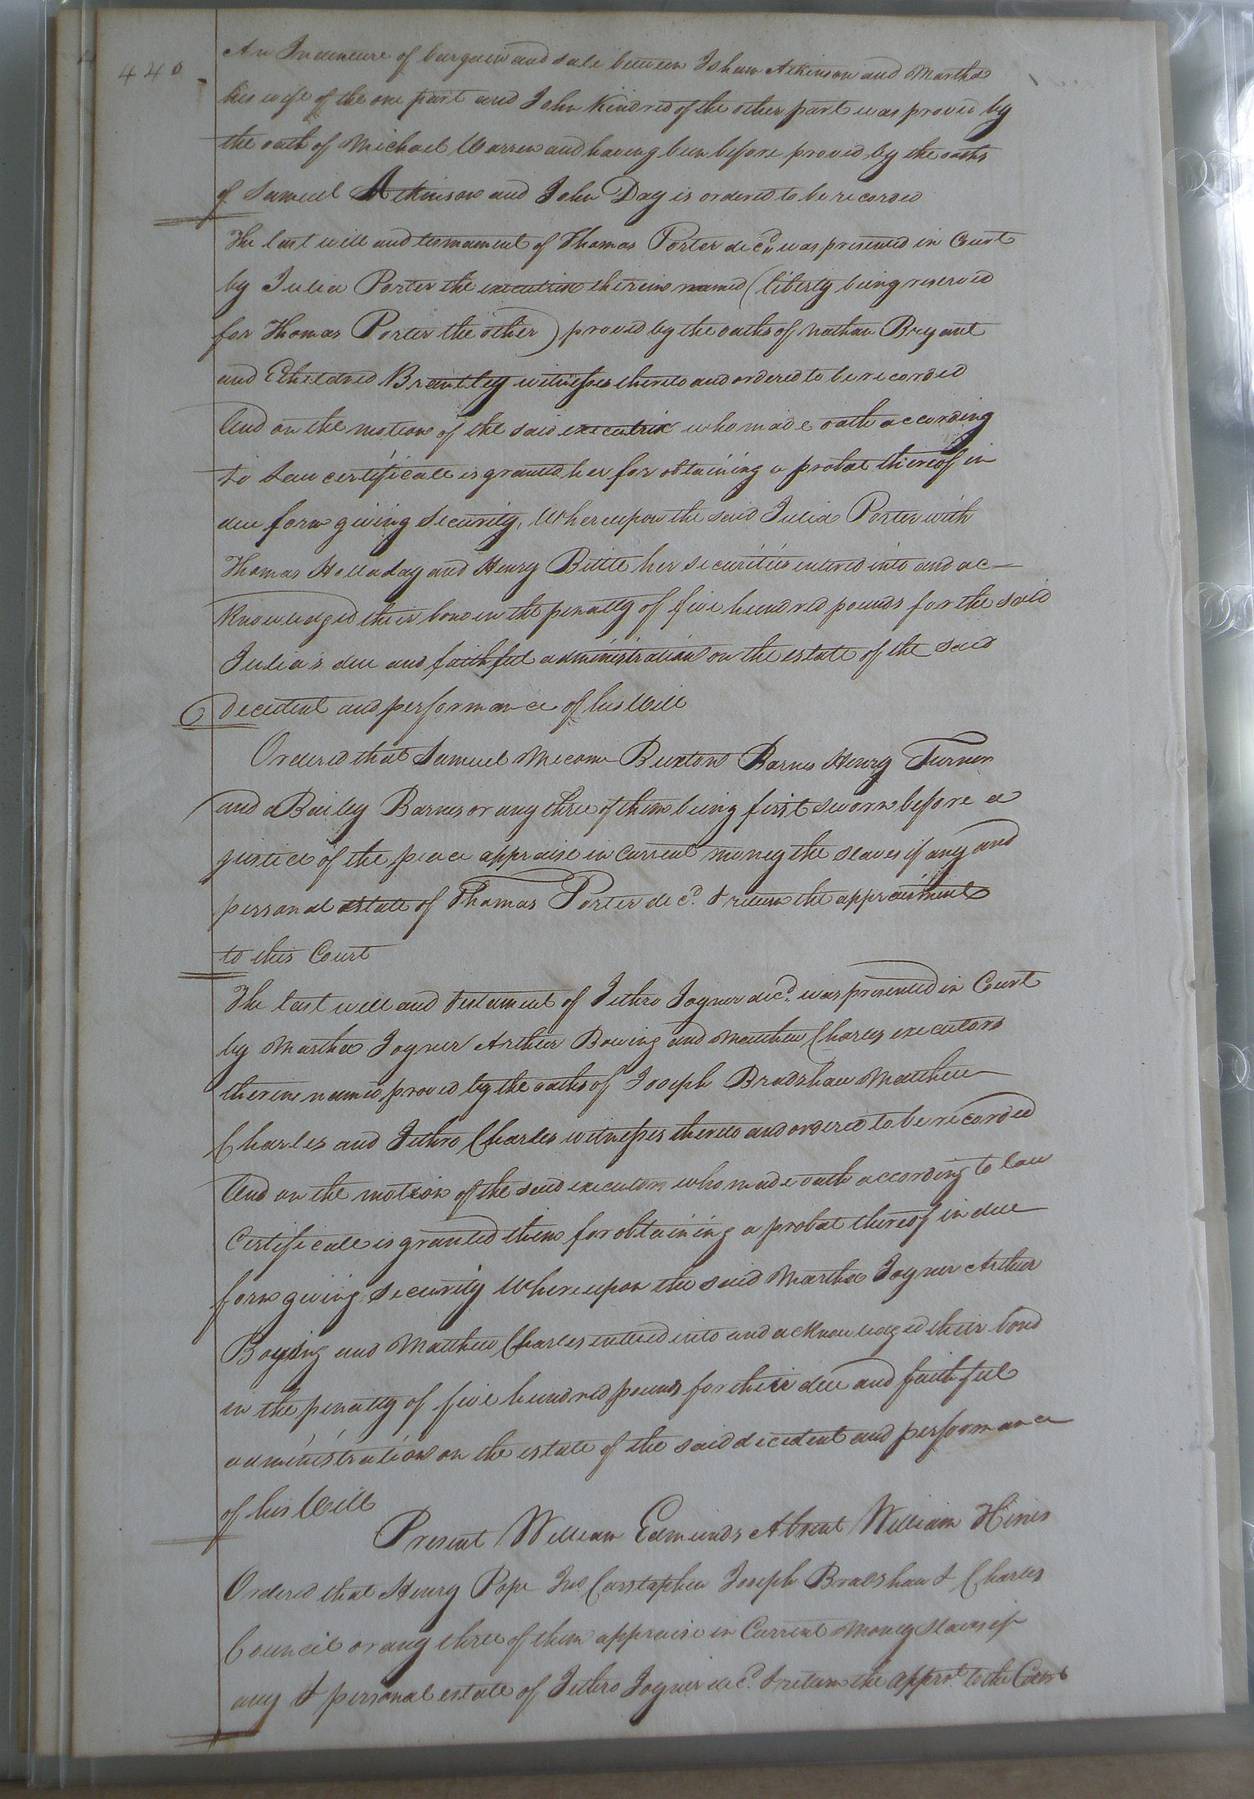 440
An Indenture of bargain and sale between Isham Atkinson and Martha
his wife of the one part and John Kindred of the other part was proved by
the oath of Michael Warren and having been before proved by the oaths
of Samuel Atkinson and John Day is ordered to be recorded
The last will and testmament of Thomas Porter decd. was presented in Court
by Julia Porter the executrix therein named (liberty being reserved
for Thomas Porter the other) proved by the oaths of Nathan Bryant
and Etheldred Brantley witnesses thereto and ordered to be recorded
And on the motion of the said executrix who made oath according
to Law certificate is granted her for obtaining a probat thereof in
due form giving Security, Whereupon the said Julia Porter with
Thomas Holladay and Henry Bittle her securities entered into and ac-
knowledged their bond in the penalty of five hundred pounds for the said
Julia's due and faithful administration on the estate of the said
decedent and performance of his Will
Ordered that Samuel Mecom Buxton Barnes Henry Turner
and Bailey Barnes or any three of them being first sworn before a
justice of the peace appraise in Current money the slaves if any and
personal estate of Thomas Porter decd. & return the appraisment
to this Court
The last will and testament of Jethro Joyner decd. was presented in Court
by Martha Joyner Arthur Bowing and Matthew Charles executors
therein named proved by the oaths of Joseph Bradshaw Matthew
Charles and Jethro Charles witnesses thereto and ordered to be recorded
And on the motion of the said executors who made oath according to law
Certificate is granted them for obtaining a probat thereof in due
form giving Security Whereupon the said Martha Joyner Arthur
and Matthew Charles entered into and acknowledged their bond
in the penalty of five hundred pounds for their due and faithful
administration on the estate of the said decedent and performance
of his Will
Present William Edmunds Absent William Hines
Ordered that Henry Pope Joseph Bradshaw & Charles
Council or any three of them appraise in Current Money Slaves if
any & personal estate of Jethro Joyner decd. & return the apprt. to the Court